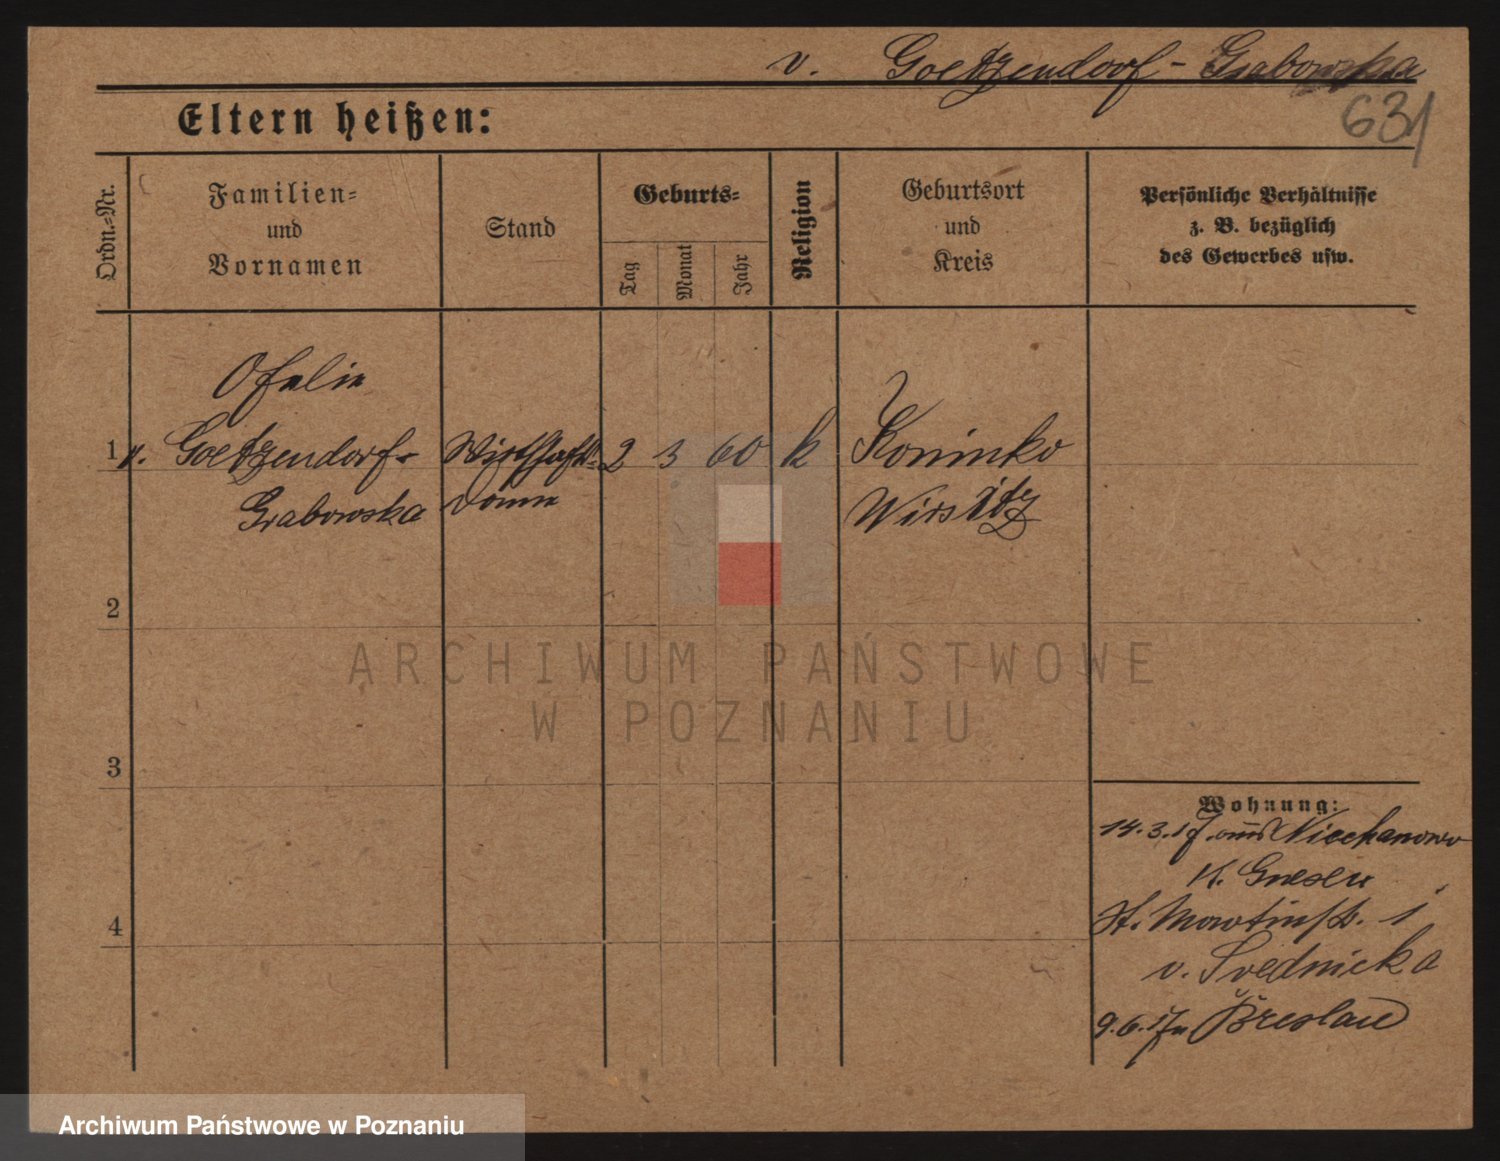 v. Goetzendorf-Grabowska
631
Eltern heißen:
Ordn.-Nr.
Familien-
und
Vornamen
Stand
Geburts-
Tag
Monat
Jahr
Religion
Geburtsort
und
Kreis
Persönliche Verhältnisse
z. B. bezüglich
des Gewerbes usw.
Ofelia
1 v. Goetzendorf- Wirtschafts- 2 3 60 k Koninko
Grabowska dame Wirsitz
2
ARCHIWUM PAŃSTWOWE
W POZNANIU
3
Wohnung:
14.3.17. aus Niechanowo
K. Gnesen
St. Martinstr. 1
v. Svednicka
9.6.17 n Breslau
4
Archiwum Państwowe w Poznaniu